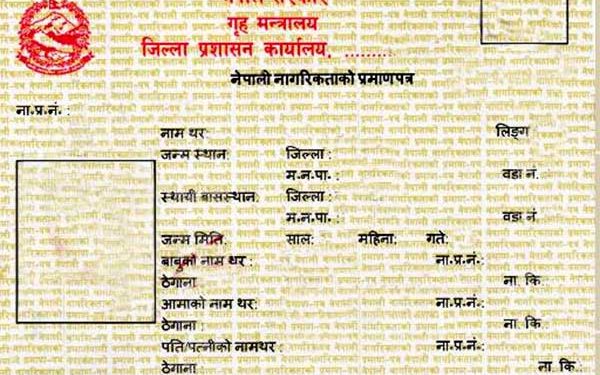 नेपाल सरकार
गृह मन्त्रालय
जिल्ला प्रशासन कार्यालय, .........
नेपाली नागरिकताको प्रमाणपत्र
ना.प्र.नं. :
नाम थर: लिङ्ग
जन्म स्थान: जिल्ला :
म.न.पा. : वडा नं.
स्थायी बासस्थान: जिल्ला :
म.न.पा. : वडा नं
जन्म मिति: साल: महिना: गते:
बाबुको नाम थर : ना.प्र.नं.:
ठेगाना ना. कि. :
आमाको नाम थर: ना.प्र.नं.:
ठेगाना : ना. कि. :
पति/पत्नीको नामथर : ना.प्र.नं.:
ठेगाना : ना. कि. :